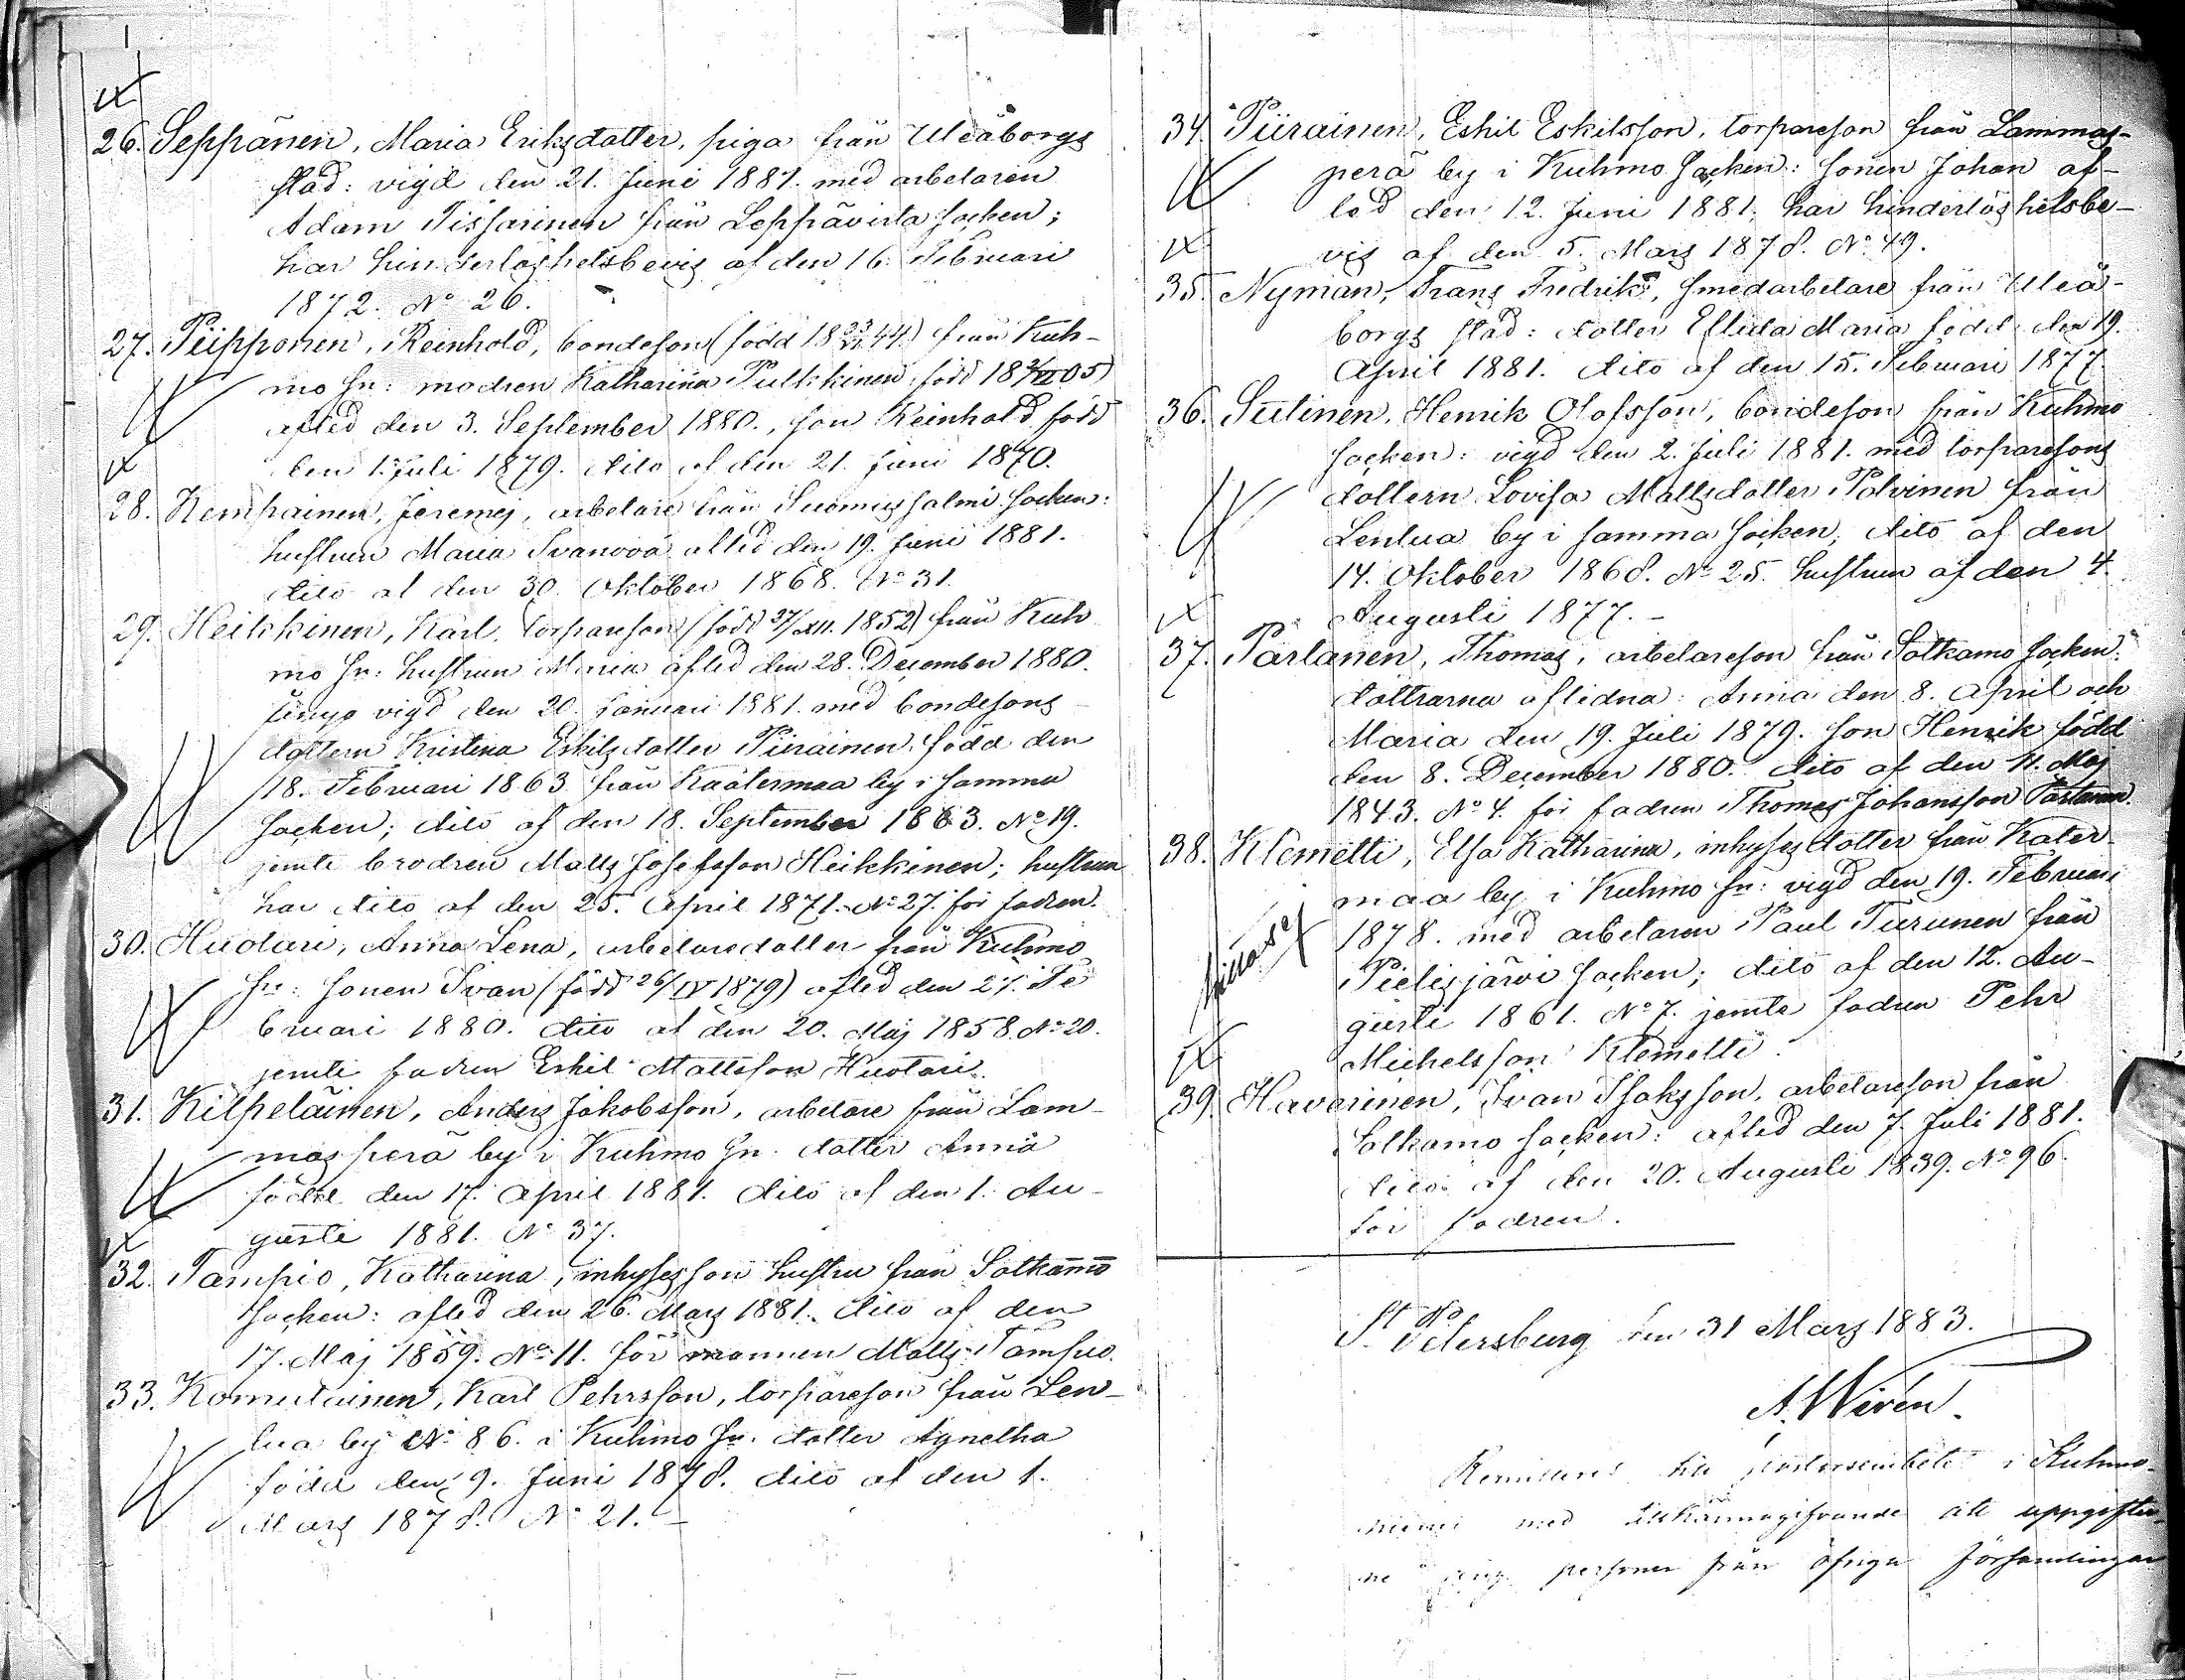 26. Seppänen, Maria Eriksdotter, piga från Uleåborgs
stad: vigd den 21. Juni 1881. med arbetaren
Adam Tissarinen från Leppävirta socken;
har hinderlöshetsbevis af den 16. Februari
1872. No 26.
27. Piipponen, Reinhold, bondeson (född 18 44) från Kuh-
mo sn: modren Katharina Pulkkinen, född 18 05)
afled den 3. September 1880., son Reinhold född
den 1. Juli 1879. dito af den 21. Juni 1870.
28. Kemppainen, Jeremej, arbetare från Suomussalmi socken:
hustrun Maria Ivanova afled den 19. Juni 1881.
dito af den 30. Oktober 1868. No 31.
29. Heikkinen, Karl, torpareson (född 27/XII. 1852) från Kuh
mo sn: hustrun Maria afled den 28. December 1880.
vigd den 20. Januari 1881. med bondesons
dottern Kristina Eskilsdotter Piirainen, född den
18. Februari 1863 från Kaatermaa by i samma
socken; dito af den 18. September 1863. No 19.
jemte brodren Matts Josefsson Heikkinen; hustrun
har dito af den 25. April 1871. No 27. för fadren.
30. Huotari, Anna Lena, arbetaredotter från Kuhmo
sn: sonen Ivan (född 26/IV 1879) afled den 27. Fe
bruari 1880. dito af den 20. Maj 1858. No 20.
jemte fadren Eskil Mattsson Huotari.
31. Kilpeläinen, Anders Jakobsson, arbetare från Lam-
masperä by i Kuhmo sn. dotter Anna
född den 17. April 1881. dito af den 1. Au-
gusti 1881. No 37.
32. Tampio, Katharina, inhysesson hustru från Sotkamo
socken: afled den 26. Mars 1881. dito af den
17. Maj 1859. No 11. för mannen Matts Tampio.
33. Komulainen, Karl Pehrsson, torpareson från Len-
tua by No 86. i Kuhmo sn. dotter Agnetha
född den 9. Juni 1878. dito af den 1.
Mars 1878. No 21.
34. Piirainen, Eskil Eskilsson, torpareson från Lammas-
perä by i Kuhmo socken: sonen Johan af-
led den 12. Juni 1881; har hinderlöshetsbe-
vis af den 5. Mars 1878. No 49.
35. Nyman, Frans Fredrik, smedarbetare från Uleå-
borgs stad: dotter Ellida Maria född den 19.
April 1881. dito af den 15. Februari 1877.
36. Sutinen, Henrik Olofsson, bondeson från Kuhmo
socken: vigd den 2. Juli 1881. med torparesons
dottern Lovisa Mattsdotter Polvinen från
Lentua by i samma socken, dito af den
14. Oktober 1868. No 25. hustrun af den 4.
Augusti 1877.
37. Partanen, Thomas, arbetareson från Sotkamo socken:
döttrarna aflidna: Anna den 8. April och
Maria den 19. Juli 1879. son Henrik född
den 8. December 1880. dito af den 11. Maj
1843. No 4. för fadren Thomas Johansson Partanen.
38. Klemetti, Elsa Katharina, inhysesdotter från Kater-
maa by i Kuhmo sn: vigd den 19. Februari
1878. med arbetaren Paul Turunen från
Pielisjärvi socken; dito af den 12. Au-
gusti 1861. No 7. jemte fadren Pehr
Michelsson Klemetti.
39. Haverinen, Ivan Isaksson, arbetareson från
Sotkamo socken: afled den 7. Juli 1881.
dito af den 20. Augusti 1839. No 96.
för fadren.
St. Petersburg den 31 Mars 1883.
A. Wirén.
Remitteras till pastorsembetet i Kuhmo-
niemi med tillkännagifvande att uppgifter-
ne personer från öfriga församlingar